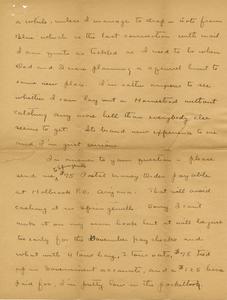 a while, unless I manage to drop a note from
Blue which is the last connection with mail.
I am quite as tickled as I used to be when
Dad and I were planning a squirrel hunt to
some new place. I'm rather anxious to see
whether I can lay out a Homestead without
catching any more hell than everybody else
seems to get. Its brand new experience to me
and I'm just curious.
In answer to your question - please
send me, $75 Postal Money Order payable
at Holbrook P.O. Arizona. That will avoid
cashing it in Springerville. Sorry I can't
make it on my own hook but it will be just
too early for the December pay checks and
what with 4 tires, 2 tires extra, $75 tied
up in Government accounts, and a $125
paid for, I'm pretty low in the pocketbook.